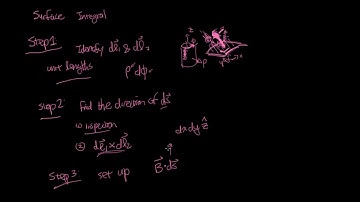 Surface Integral
Step 1: Identify dl₁ & dl₂
unit lengths ρ dφ
Step 2: find the direction of ds
① inspection dx dy ẑ
② dl₁ × dl₂
Step 3: set up B · ds